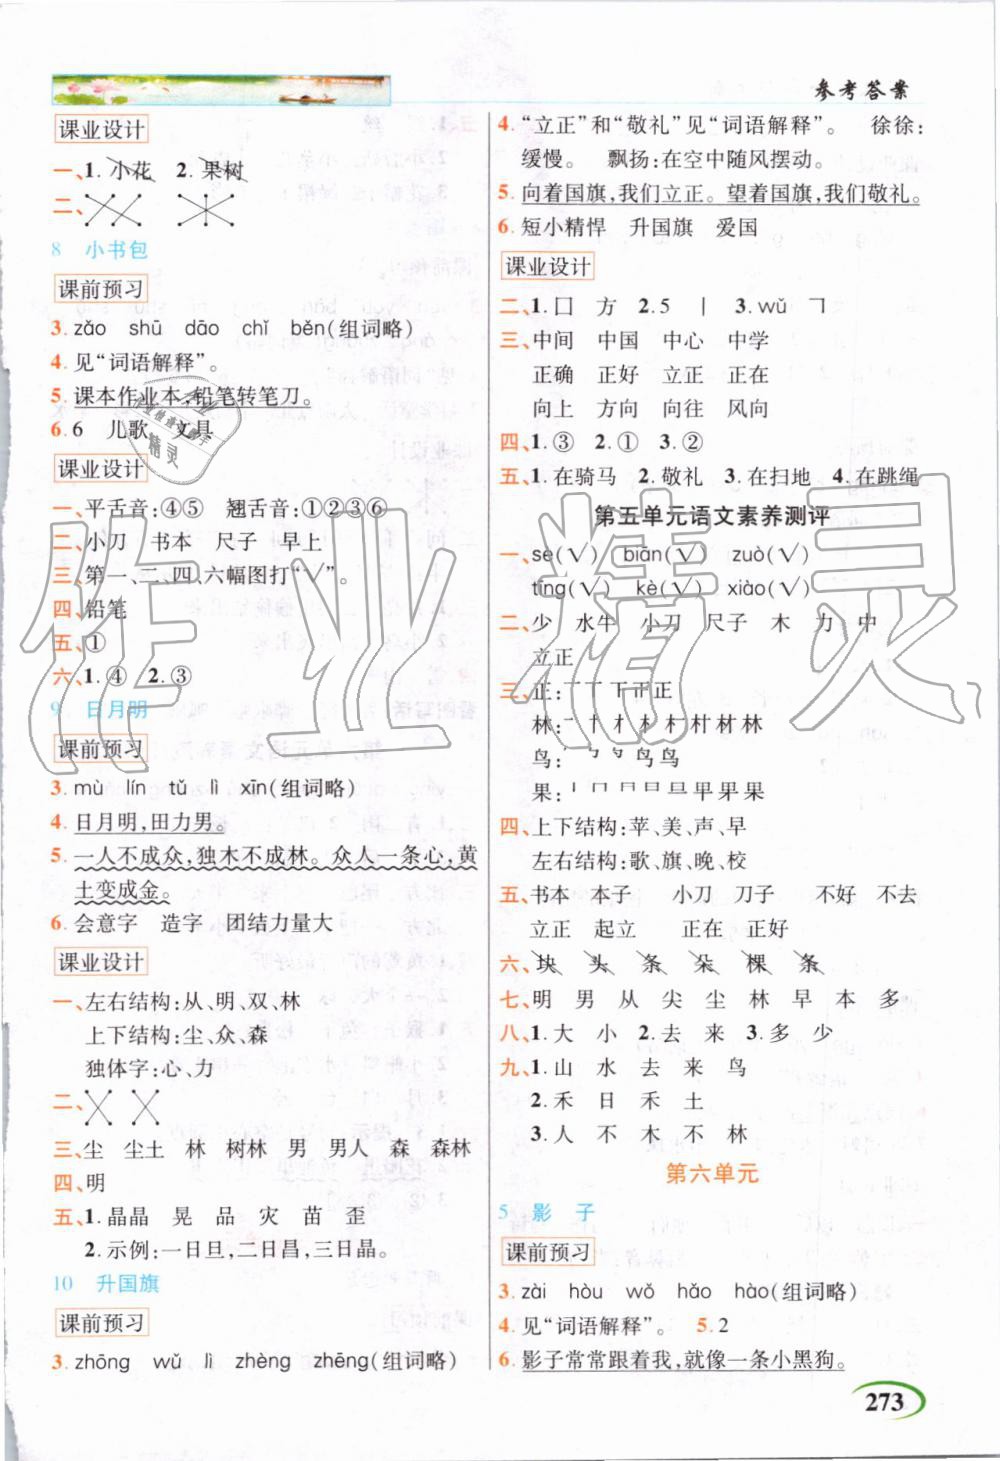 参考答案
课业设计
一、1. 小花 2. 果树
二、
8 小书包
课前预习
3. zǎo shū dāo chǐ běn(组词略)
4. 见“词语解释”。
5. 课本作业本,铅笔转笔刀。
6. 6 儿歌 文具
课业设计
一、平舌音:④⑤ 翘舌音:①②③⑥
二、小刀 书本 尺子 早上
三、第一、二、四、六幅图打“√”。
四、铅笔
五、①
六、1. ④ 2. ③
9 日月明
课前预习
3. mù lín tǔ lì xīn(组词略)
4. 日月明,田力男。
5. 一人不成众,独木不成林。众人一条心,黄
土变成金。
6. 会意字 造字 团结力量大
课业设计
一、左右结构:从、明、双、林
上下结构:尘、众、森
独体字:心、力
二、
三、尘 尘土 林 树林 男 男人 森 森林
四、明
五、1. 晶晶 晃 品 灾 苗 歪
2. 示例:一日旦,二日昌,三日晶。
10 升国旗
课前预习
3. zhōng wǔ lì zhèng zhēng(组词略)
4. “立正”和“敬礼”见“词语解释”。 徐徐:
缓慢。 飘扬:在空中随风摆动。
5. 向着国旗,我们立正。望着国旗,我们敬礼。
6. 短小精悍 升国旗 爱国
课业设计
二、1. 囗 方 2. 5 丨 3. wǔ ㇕
三、中间 中国 中心 中学
正确 正好 立正 正在
向上 方向 向往 风向
四、1. ③ 2. ① 3. ②
五、1. 在骑马 2. 敬礼 3. 在扫地 4. 在跳绳
第五单元语文素养测评
一、sè(√) biān(√) zuò(√)
tīng(√) kè(√) xiào(√)
二、少 水牛 小刀 尺子 木 力 中
立正
三、正:
林:
鸟:
果:
四、上下结构:苹、美、声、早
左右结构:歌、旗、晚、校
五、书本 本子 小刀 刀子 不好 不去
立正 起立 正在 正好
六、块 头 条 朵 棵 条
七、明 男 从 尖 尘 林 早 本 多
八、1. 大 小 2. 去 来 3. 多 少
九、1. 山 水 去 来 鸟
2. 禾 日 禾 土
3. 人 不 木 不 林
第六单元
5 影 子
课前预习
3. zài hòu wǒ hǎo hào(组词略)
4. 见“词语解释”。 5. 2
6. 影子常常跟着我,就像一条小黑狗。
273
作业精灵